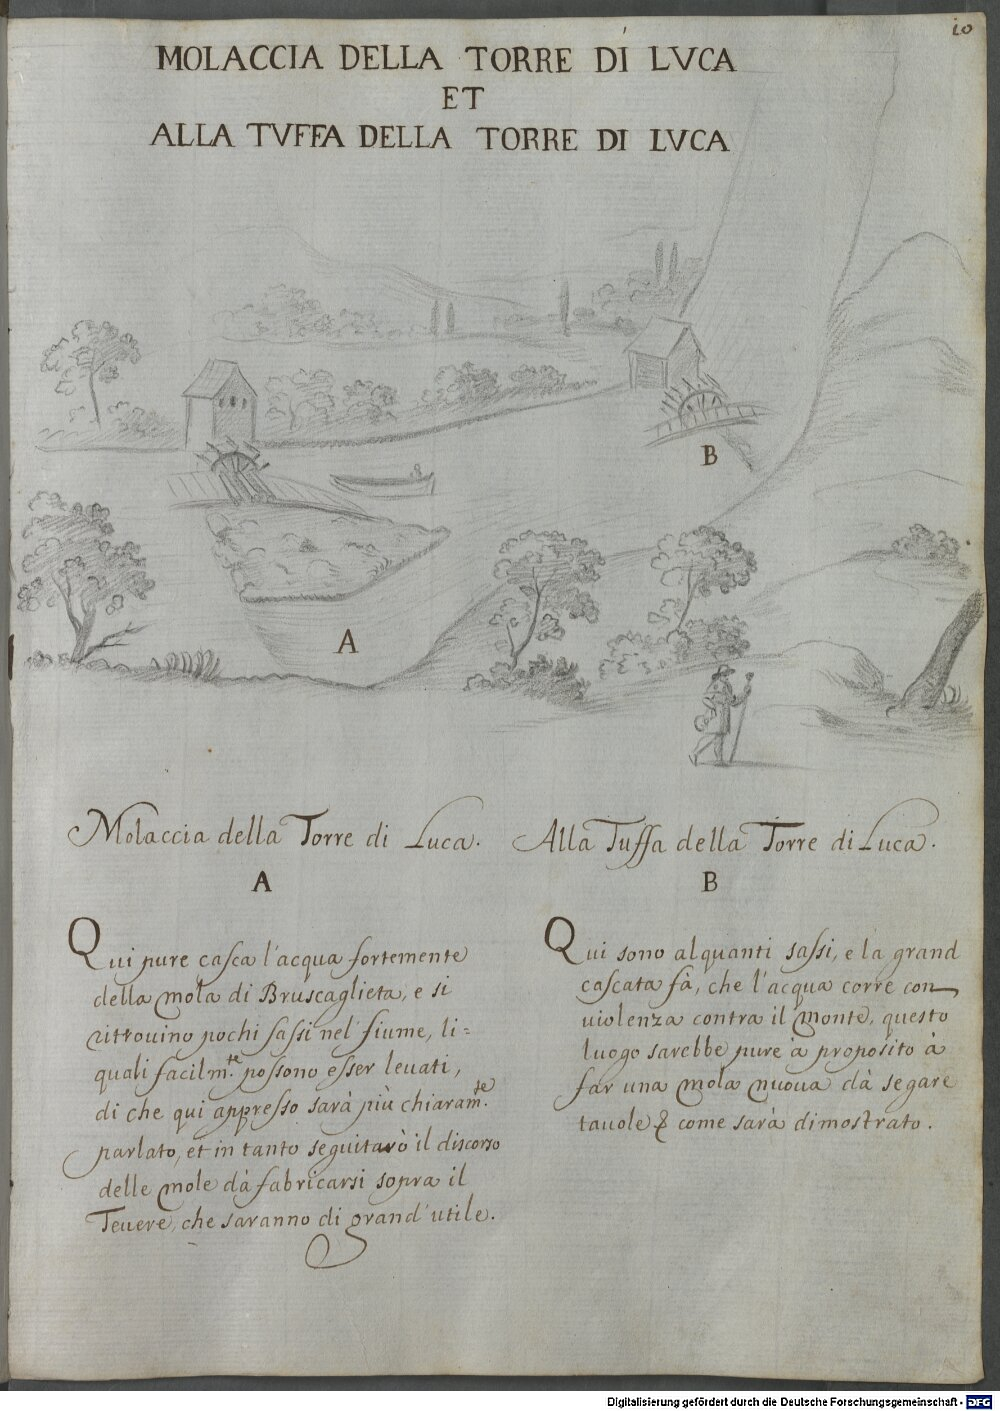 10
MOLACCIA DELLA TORRE DI LVCA
ET
ALLA TVFFA DELLA TORRE DI LVCA
B
A
Molaccia della Torre di Luca.
A
Qui pure casca l'acqua fortemente
della mola di Bruscaglieta, e si
ritrouino pochi sassi nel fiume, li=
quali facilm.te possono esser leuati,
di che qui appresso sarà più chiaram.te
parlato, et in tanto seguitarò il discorso
delle mole dà fabricarsi sopra il
Teuere, che saranno di grand'utile.
Alla Tuffa della Torre di Luca.
B
Qui sono alquanti sassi, e la grand
cascata fà, che l'acqua corre con
uiolenza contra il monte, questo
luogo sarebbe pure à proposito à
far una mola nuoua dà segare
tauole & come sarà dimostrato.
Digitalisierung gefördert durch die Deutsche Forschungsgemeinschaft - DFG